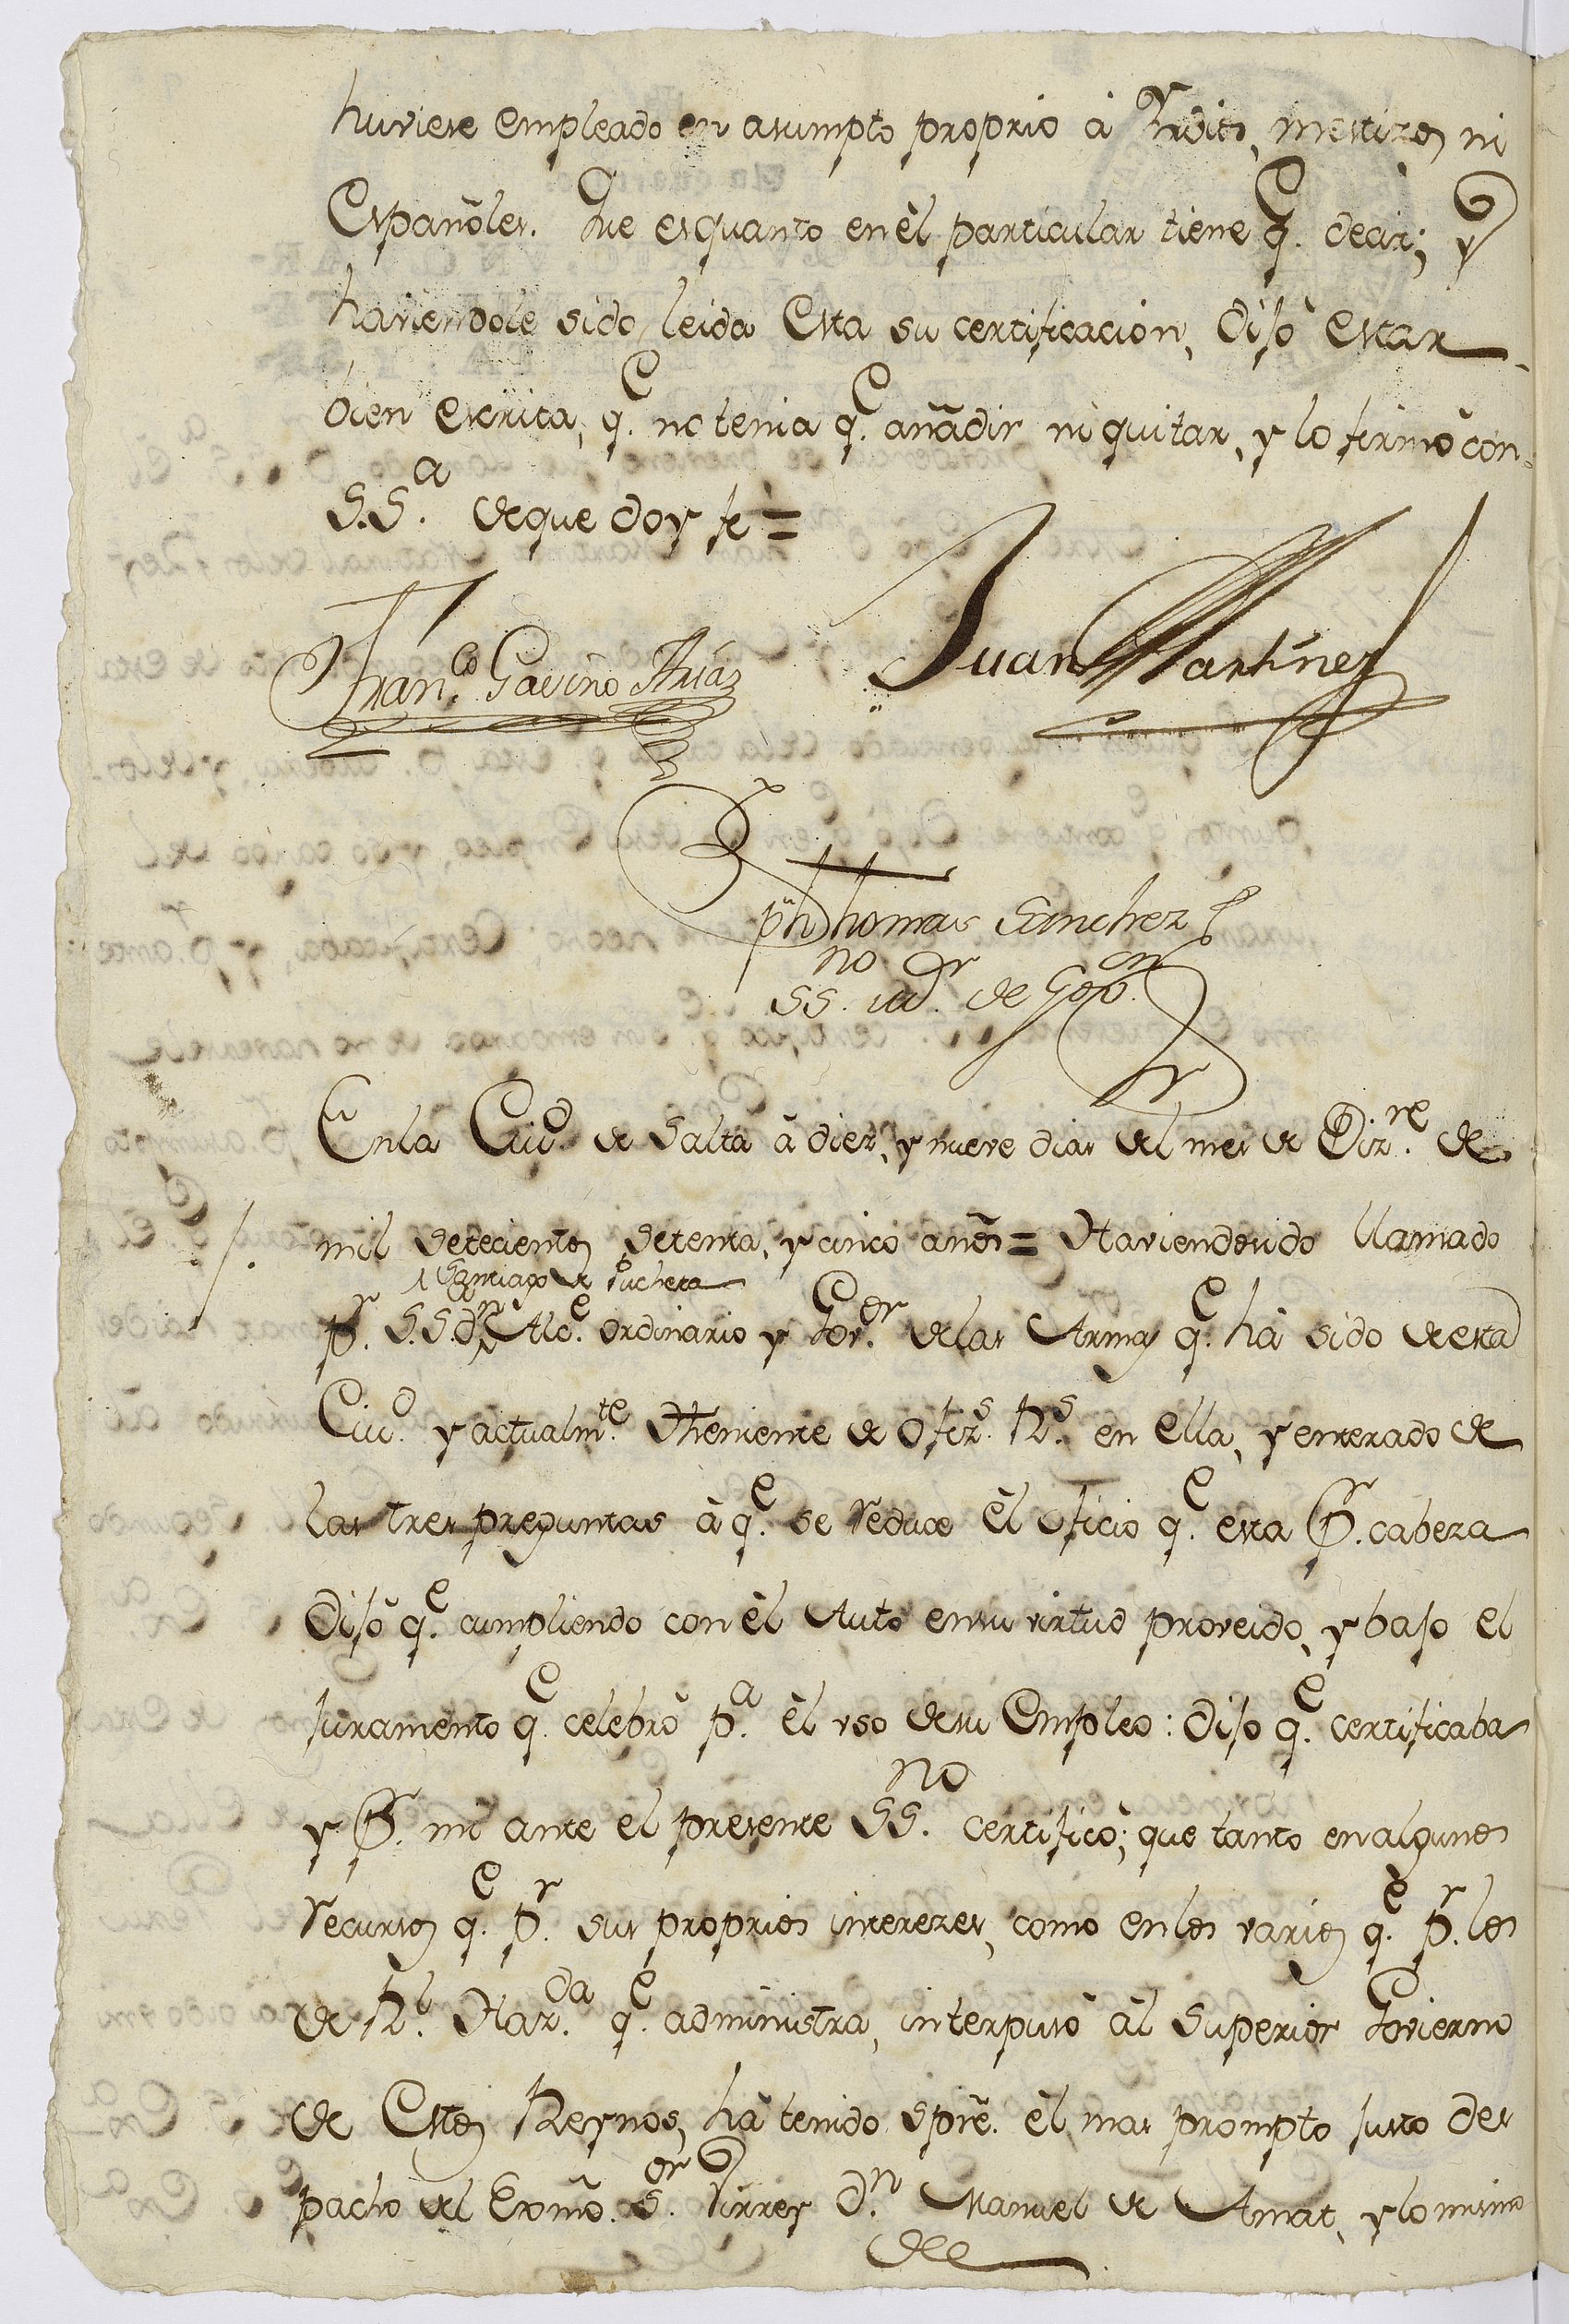 huviese empleado en asumpto proprio â Yndios, mestizos ni
Españoles. Que es quanto en êl particular tiene q.e decir; y
haviendole sido leida Esta su certificacion, dijo estar
bien escrita, q.e no tenia q.e añadir ni quitar, y lo firmô con
S.S.a de que doy fe =
Fran.co Gavino Arias
Juan Martinez
Thomas Sanchez
SS.no
En la Ciud. de Salta â diez, y nueve dias del mes de Diz.re de
mil setecientos setenta, y cinco años = Haviendo sido llamado
Santiago de Puchera
p.r S.S. d.n Alc.e ordinario y Gov.or delas Armas q.e hâ sido de esta
Ciud. y actualm.te Theniente de Ofiz.s R.s en ella, y enterado de
las tres preguntas â q.e se reduce êl oficio q.e esta p.r cabeza
Dijo q.e cumpliendo con êl Auto en su virtud proveido, y bajo el
juramento q.e celebrô p.a êl uso de su Empleo: dijo q.e certificaba
y p.r mi ante el presente SS.no certificô; que tanto en algunos
recursos q.e p.r sus proprios interezes, como en los varios q.e p.r los
de R.l Haz.da q.e administra, interpuso âl Superior Govierno
de Estos Reynos, hâ tenido spre. êl mas prompto justo des
pacho del Exmô. S.or Virrey D.n Manuel de Amat, y lo mismo